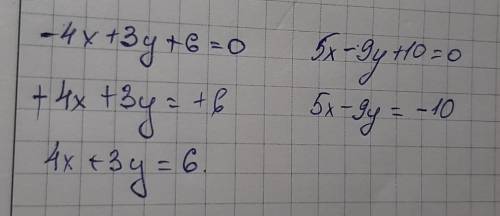 -4x+3y+6=0
+4x+3y=+6
4x+3y=6.
5x-9y+10=0
5x-9y=-10